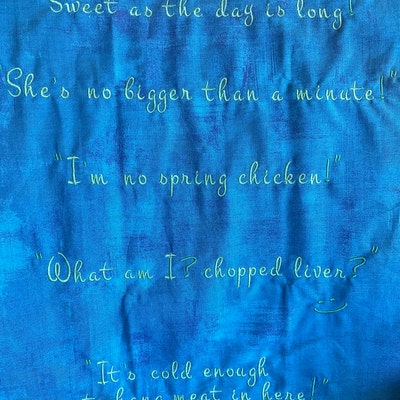 Sweet as the day is long!
"She's no bigger than a minute!"
"I'm no spring chicken!"
"What am I? chopped liver?"
"It's cold enough
to hang meat in here!"